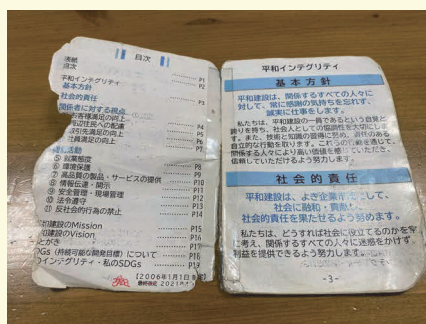 目次
表紙
目次
P1
平和インテグリティ
P2
基本方針
社会的責任
P3
関係者に対する視点
お客様満足の向上
P4
周辺住民への配慮
P5
取引先満足の向上
P6
社員満足の向上
P7
活動
⑤ 就業態度
P8
⑥ 環境保護
P9
⑦ 高品質の製品・サービスの提供
P10
⑧ 情報伝達・開示
P11
⑨ 安全管理・現場管理
P12
⑩ 法令遵守
P13
⑪ 反社会的行為の禁止
P14
和建設のMission
P15
和建設のVision
P16
とがき
P17
DGs（持続可能な開発目標）について
P18
のインテグリティ・私のSDGs
P19
【2006年1月1日
最終改定 2021年
平和インテグリティ
基本方針
平和建設は、関係するすべての人々に
対して、常に感謝の気持ちを忘れず、
誠実に仕事をします。
私たちは、平和建設の一員であるという自覚と
誇りを持ち、社会人としての協調性を大切にしま
す。また、技術と知識の習得に努め、責任のある
自立的な行動を取ります。これらの行動を通じて、
関係する人々により高い価値を感じていただき、
信頼していただけるよう努力します。
社会的責任
平和建設は、よき企業市民として、
社会に融和・貢献し
社会的責任を果たせるよう努めます。
私たちは、どうすれば社会に役立てるのかを常
に考え、関係するすべての人々に迷惑をかけず
利益を提供できるよう努力します。
-3-